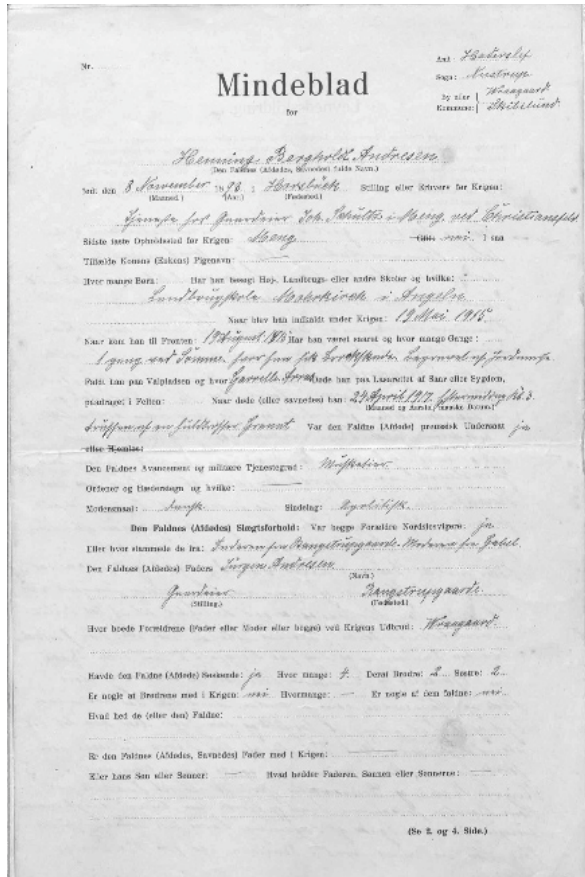 Nr.
Amt: Haderslef
Sogn: Nustrup
By eller Kommune: Wraagaard Skibelund
Mindeblad
for
Henning Bergholdt Andresen
(Den Faldnes (Afdødes, Savnedes) fulde Navn.)
født den 8 November 1893 i Horsbück Stilling eller Erhverv før Krigen:
(Maaned.) (Aar.) (Fødested.)
Tjeneste hos Gaardeier Joh. Schultz i Meng ved Christiansfeld
Sidste faste Opholdssted før Krigen: Meng Gift: nei, i saa
Tilfælde Konens (Enkens) Pigenavn:
Hvor mange Børn: Har han besøgt Høj-, Landbrugs- eller andre Skoler og hvilke:
Landbrugskole Mohrkirch i Angeln
Naar blev han indkaldt under Krigen: 19 Mai 1915
Naar kom han til Fronten: 19 August 1915 Har han været saaret og hvor mange Gange:
1 gang ved Somme, hvor han fik Begravet af Jordmasse
Faldt han paa Valpladsen og hvor Døde han paa Lasarettet af Saar eller Sygdom,
paadraget i Felten: Naar døde (eller savnedes) han: 29 April 1917, Eftermiddag Kl. 3.
(Maaned og Aarstal, danske Datoer.)
truffen af en Granat Var den Faldne (Afdøde) preussisk Undersaat ja
eller Hjemløs:
Den Faldnes Avancement og militære Tjenestegrad: Musketier
Ordener og Hæderstegn og hvilke:
Modersmaal: dansk Sindelag: Apolitisk
Den Faldnes (Afdødes) Slægtsforhold: Var begge Forældre Nordslesvigere: ja
Eller hvor stammede de fra: Faderen fra Bangstrupgaarde. Moderen fra Gabel
Den Faldnes (Afdødes) Faders Jürgen Andresen
(Navn.)
Gaardeier Bangstrupgaarde
(Stilling.) (Fødested.)
Hvor boede Forældrene (Fader eller Moder eller begge) ved Krigens Udbrud: Wraagaard
Havde den Faldne (Afdøde) Søskende: ja Hvor mange: 4. Deraf Brødre: 2 Søstre: 2
Er nogle af Brødrene med i Krigen: nei Hvormange: — Er nogle af dem faldne: nei
Hvad hed de (eller den) Faldne:
Er den Faldnes (Afdødes, Savnedes) Fader med i Krigen:
Eller hans Søn eller Sønner: Hvad hedder Faderen, Sønnen eller Sønnerne:
(Se 2. og 4. Side.)